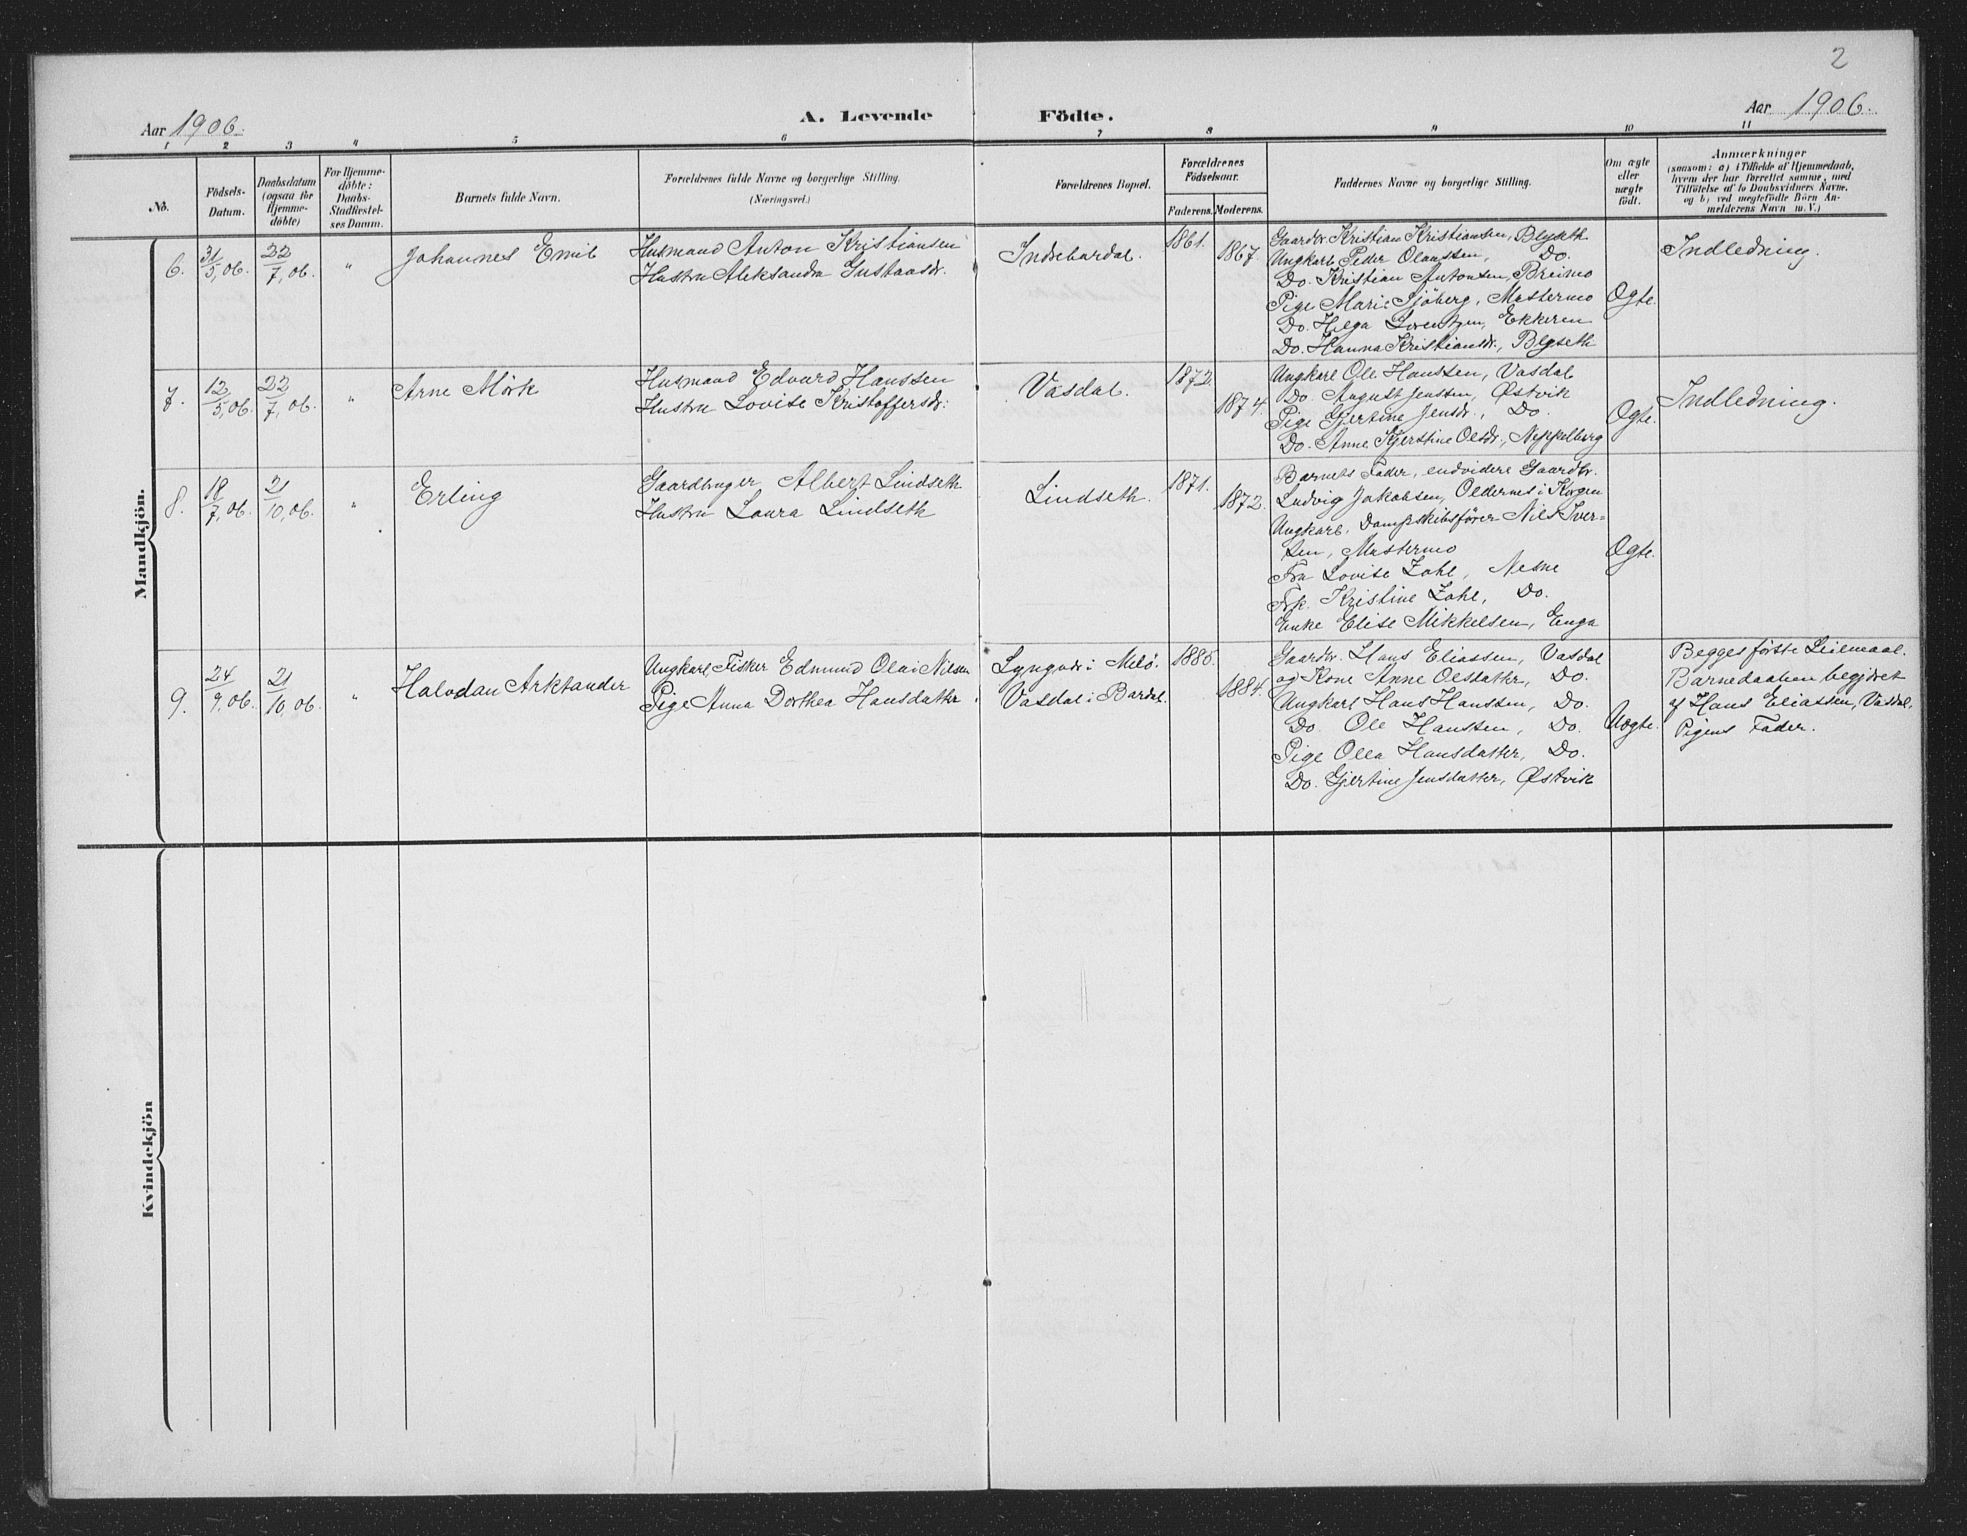 2
Aar 1906.
A. Levende Födte.
Aar 1906.
1 2 3 4 5 6 7 8 9 10 11
No.
Födsels-Datum.
Daabsdatum (ogsaa for Hjemmedøbte)
For Hjemmedøbte: Daabs-Stadfæstelses Datum.
Barnets fulde Navn.
Forældrenes fulde Navne og borgerlige Stilling.
(Næringsvei.)
Forældrenes Bopæl.
Forældrenes Födselsaar.
Faderens. Moderens.
Faddernes Navne og borgerlige Stilling.
Om ægte eller uægte födt.
Anmærkninger
(saasom: a) i Tilfælde af Hjemmedaab,
hvem der har forrettet samme, med
Tilföielse af to Daabsvidners Navne,
og b) ved uægtefödte Börn An-
melderens Navn m. V.)
Mandkjön.
6. 31/5, 06. 22/7, 06. "
Johannes Emil
Husmand Anton Kristiansen
Hustru Aleksandra Gustavsdr.
Indrebardal.
1861.
1867.
Gaardbr. Kristian Kristiansen, Blyseth
Ungkarl Peder Olaussen, Do.
Do. Kristian Antonsen, Breimo
Pige Marie Sjöberg, Mastermo
Do. Helga Lorentzen, Ekkeren
Do. Hanna Kristiansdr., Blyseth
Ægte.
Indledning.
7. 12/5, 06. 22/7, 06. "
Arne Mörk
Husmand Edvard Hanssen
Hustru Lovise Kristoffersdr.
Vasdal.
1872.
1874.
Ungkarl Ole Hanssen, Vasdal
Do. August Jenssen, Østvik
Pige Gjertine Jensdr., Do.
Do. Anne Kjerstine Olsdr., Neppelberg
Ægte.
Indledning.
8. 18/7, 06. 21/10, 06. "
Erling
Gaardbruger Albert Lindseth
Hustru Laura Lindseth
Lindseth.
1871.
1872.
Barnets Fader, endvidere Gaardbr.
Ludvig Jakobsen, Oldernes i Korgen
Ungkarl, Dampskibsfører Nils Iver-
sen, Mastermo
Fru Lovise Zahl, Nesne
Frk. Kristine Zahl, Do.
Enke Elise Mikkelsen, Enga
Ægte.
9. 24/9, 06. 21/10, 06. "
Halvdan Arktander
Ungkarl, Fisker Edmund Olai Nilsen
Pige Anna Dorthea Hansdatter
Lyngvær i Melö.
Vasdal i Bardal.
1885.
1884.
Gaardbr. Hans Eliassen, Vasdal
og Kone Anne Olsdatter, Do.
Ungkarl Hans Hanssen, Do.
Do. Ole Hanssen, Do.
Pige Olea Hansdatter, Do.
Do. Gjertine Jensdatter, Østvik
Uægte.
Begges förste Leiermaal.
Barnedaaben begjæret
af Hans Eliassen, Vasdal,
Pigens Fader.
Kvindekjön